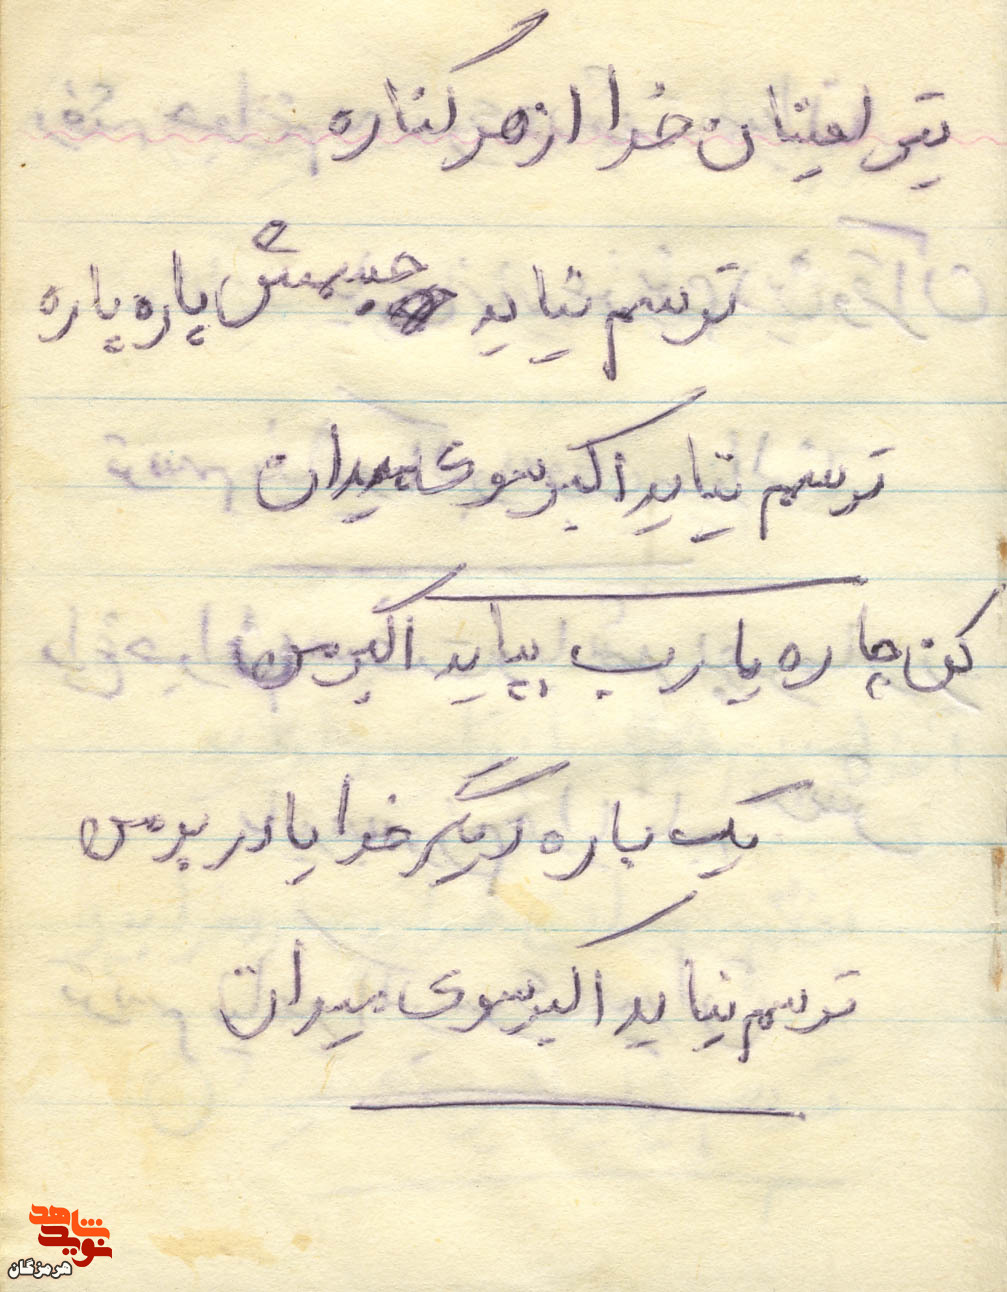 تیر لعینان خدا از هر کناره
ترسم نیاید جسمش پاره پاره
ترسم نیاید اکبر سوی میدان
کن چاره یا رب بیاید اکبر من
یک باره دیگر خدایا در بر من
ترسم نیاید اکبر سوی میدان
نوید شاهد
هرمزگان